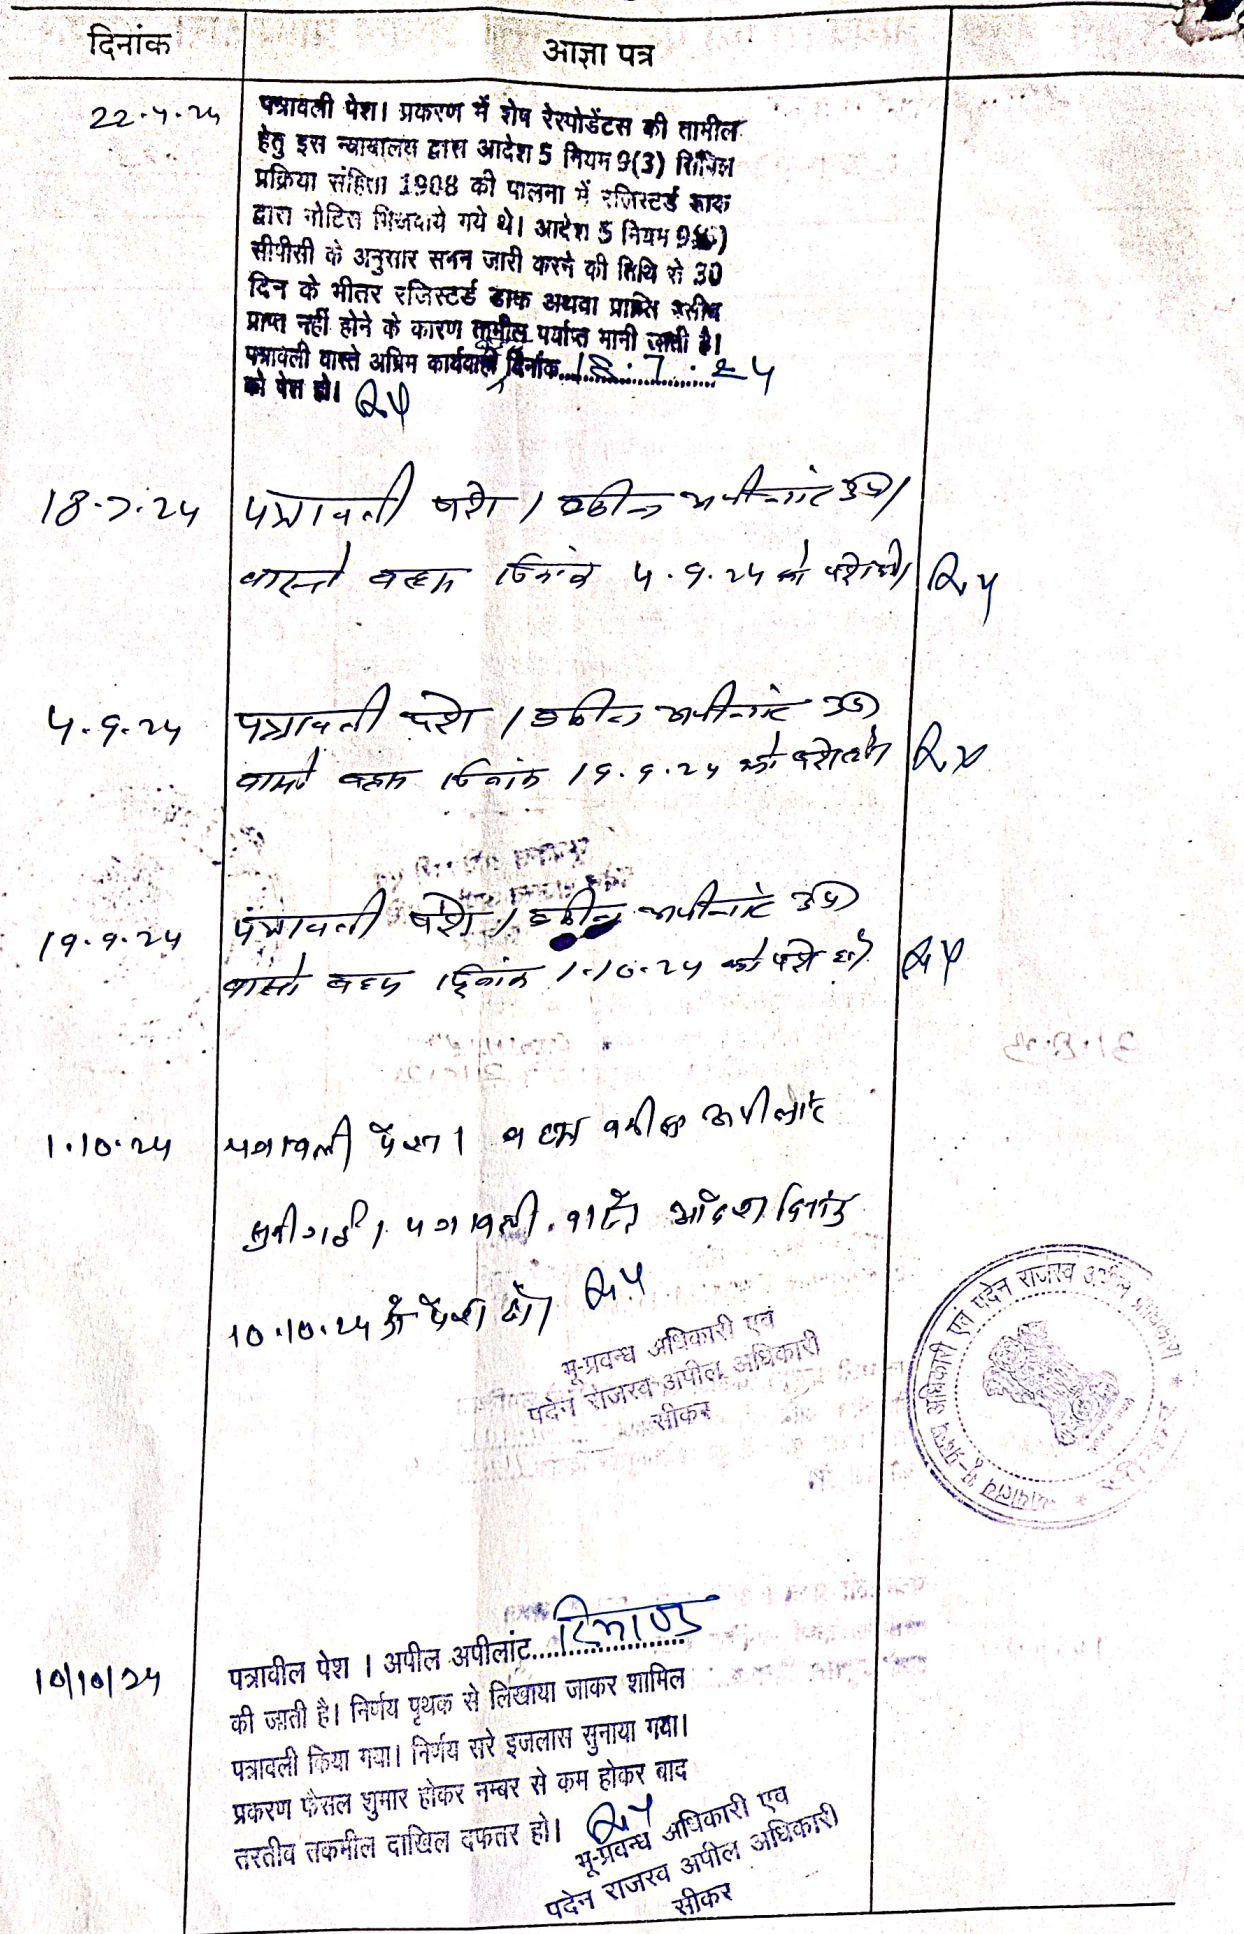 दिनांक
आज्ञा पत्र
22.4.24
पत्रावली पेश। प्रकरण में शेष रेस्पोडेंटस की तामील
हेतु इस न्यायालय द्वारा आदेश 5 नियम 9(3) सिविल
प्रक्रिया संहिता 1908 की पालना में रजिस्टर्ड डाक
द्वारा नोटिस भिजवाये गये थे। आदेश 5 नियम
सीपीसी के अनुसार समन जारी करने की तिथि से 30
दिन के भीतर रजिस्टर्ड डाक अथवा प्राप्ति रसीद
प्राप्त नहीं होने के कारण तामील पर्याप्त मानी जाती है।
पत्रावली वास्ते अग्रिम कार्यवाही दिनांक 18.7.24
को पेश हो।
18.7.24
पत्रावली पेश। वकील अपीलांट उप।
वास्ते बहस दिनांक 4.9.24 को पेश हो।
4.9.24
पत्रावली पेश। वकील अपीलांट उप
वास्ते बहस दिनांक 19.9.24 को पेश हो।
19.9.24
पत्रावली पेश। वकील अपीलांट उप
वास्ते बहस दिनांक 1.10.24 को पेश हो
1.10.24
पत्रावली पेश। बहस वकील अपीलांट
सुनी गई। पत्रावली वास्ते आदेश दिनांक
10.10.24 को पेश हो।
भू-प्रवन्ध अधिकारी एवं
पदेन राजस्व अपील अधिकारी
सीकर
न्यायालय भू-प्रबन्ध अधिकारी एवं पदेन राजस्व अपील अधिकारी
10/10/24
पत्रावील पेश । अपील अपीलांट
की जाती है। निर्णय पृथक से लिखाया जाकर शामिल
पत्रावली किया गया। निर्णय सरे इजलास सुनाया गया।
प्रकरण फैसल शुमार होकर नम्बर से कम होकर बाद
तरतीव तकमील दाखिल दफतर हो।
भू-प्रवन्ध अधिकारी एव
पदेन राजस्व अपील अधिकारी
सीकर